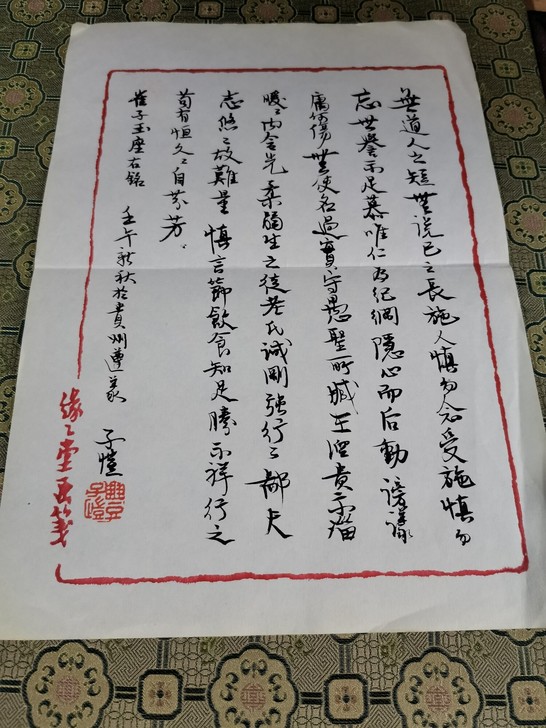 無道人之短無说己之長施人慎勿念受施慎勿
忘世譽不足慕唯仁为纪綱隱心而后動谤議
庸何傷無使名過實守愚聖所臧在涅贵不淄
暧暧内含光柔弱生之徒老氏诫剛强行行鄙夫
志悠悠故難量慎言節飲食知足勝不祥行之
苟有恒久久自芬芳
崔子玉座右铭 壬午新秋於贵州遵义 子愷
缘缘堂画笺
豐子愷